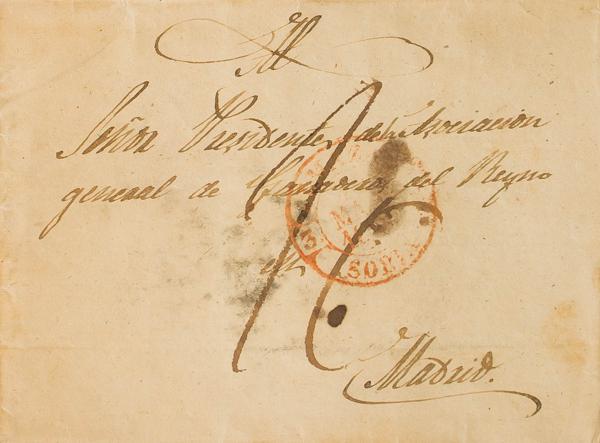 Al
Señor Presidente de la Asociacion
general de Ganaderos del Reyno
en
Madrid.
SORIA